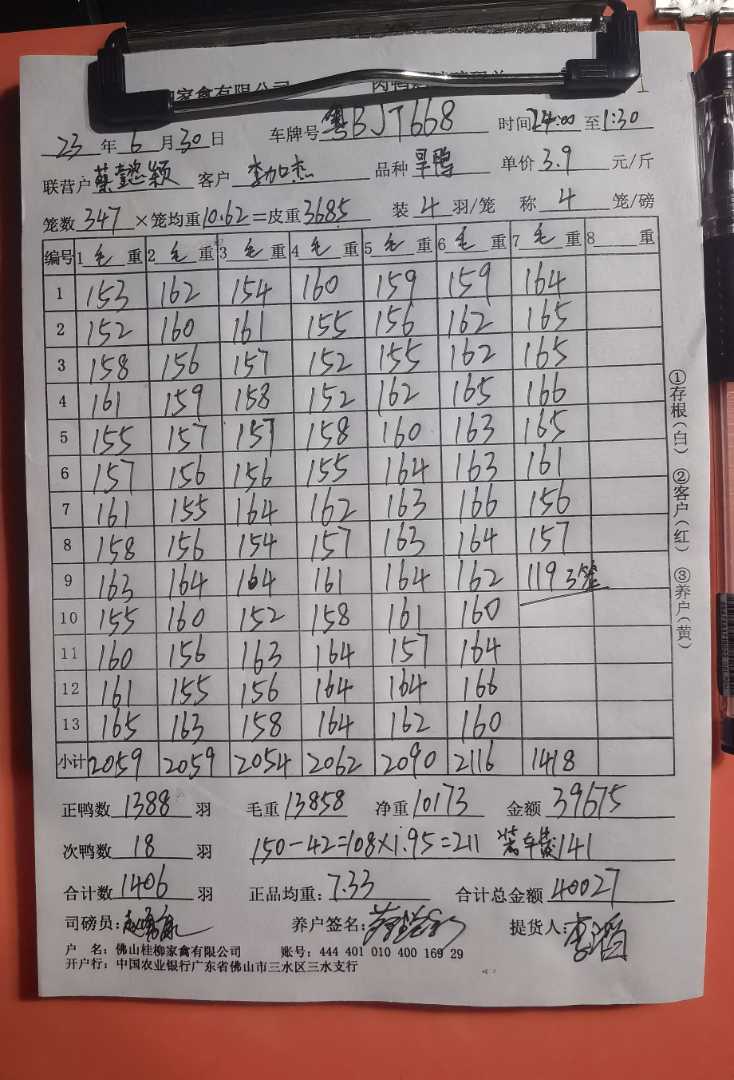 柳家禽有限公司
23 年 6 月 30 日 车牌号 粤BJT668 时间 24:00 至 1:30
联营户 蔡懿颖 客户 李加杰 品种 旱鸭 单价 3.9 元/斤
笼数 347 ×笼均重 10.62 =皮重 3685 装 4 羽/笼 称 4 笼/磅
编号 1 毛 重 2 毛 重 3 毛 重 4 毛 重 5 毛 重 6 毛 重 7 毛 重 8 重
1 153 162 154 160 159 159 164
2 152 160 161 155 156 162 165
3 158 156 157 152 155 162 165
4 161 159 158 152 162 165 166
5 155 157 157 158 160 163 165
6 157 156 156 155 164 163 161
7 161 155 164 162 163 166 156
8 158 156 154 157 163 164 157
9 163 164 164 161 164 162 119 3笼
10 155 160 152 158 161 160
11 160 156 163 164 157 164
12 161 155 156 164 164 166
13 165 163 158 164 162 160
小计 2059 2059 2054 2062 2090 2116 1418
正鸭数 1388 羽 毛重 13858 净重 10173 金额 39675
次鸭数 18 羽 150-42=108×1.95=211 装车费141
合计数 1406 羽 正品均重: 7.33 合计总金额 40027
司磅员: 养户签名: 提货人:
户 名: 佛山桂柳家禽有限公司 账号: 444 401 010 400 169 29
开户行: 中国农业银行广东省佛山市三水区三水支行
①存根(白) ②客户(红) ③养户(黄)